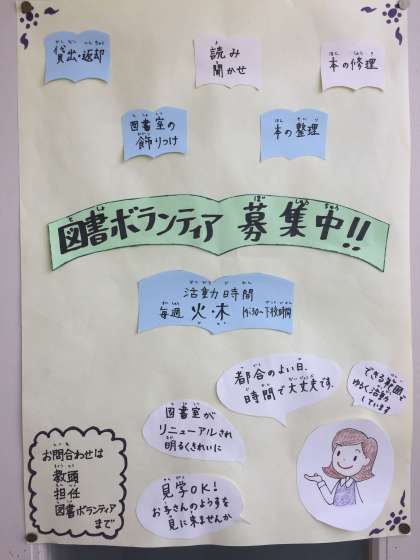 貸出・返却
読み
聞かせ
本の修理
図書室の
飾りつけ
本の整理
図書ボランティア 募集中!!
活動時間
毎週 火・木
都合のよい日、
時間で大丈夫です。
できる範囲で
ゆるく活動
しています
図書室が
リニューアルされ
明るくきれいに
見学OK!
お子さんのようすを
見に来ませんか
お問合わせは
教頭
担任
図書ボランティア
まで